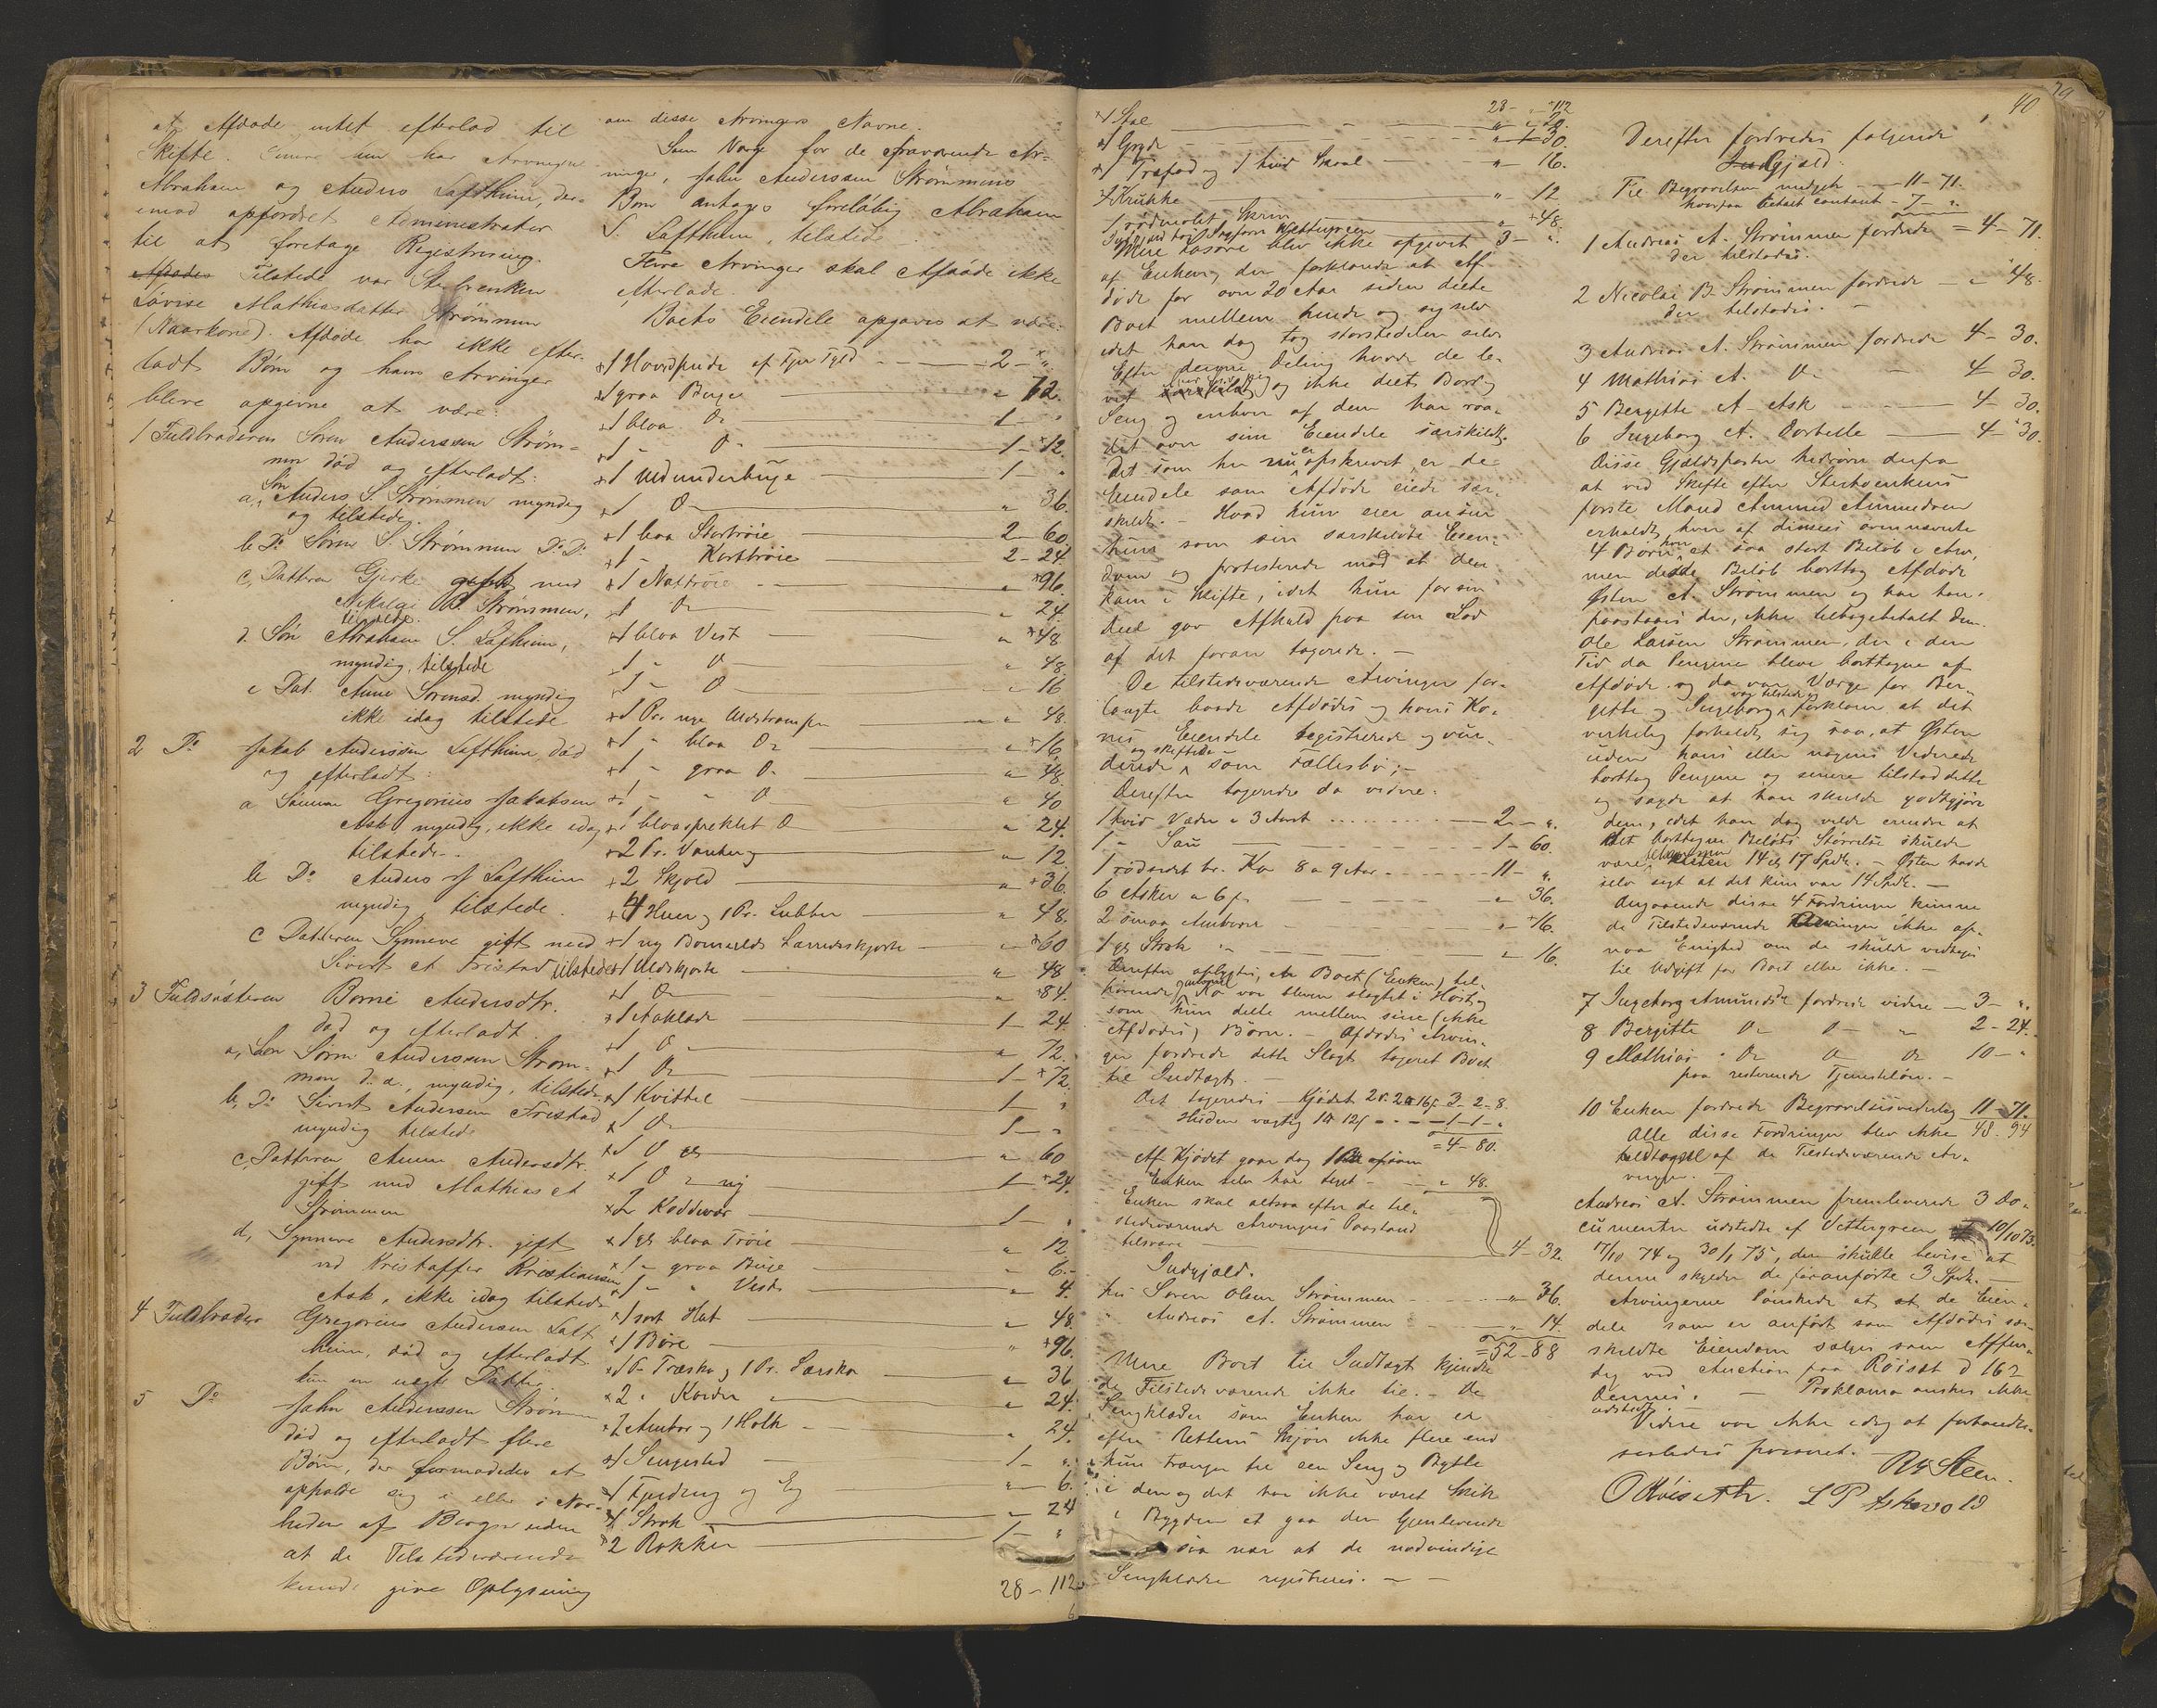 at Afdøde intet efterlod til
Skifte. Senere har Arvingerne
Abraham og Anders Laftheim, der-
imod opfordret Administrator
til at foretage Registrering.
Tilstede var Stervenken
Lovise Mathiasdatter Strømmen
(Kaarkone). Afdøde har ikke efter-
ladt Børn og hans Arvinger
bleve opgivne at være:
1 Fuldbroderen Søren Anderssen Strøm-
men død og efterladt:
a, Søn Anders S. Strømmen myndig
og tilstede.
b Do Søren S. Strømmen Do Do
c, Datteren Gjerke gift med
Nikolai B. Strømmen,
tilstede.
d. Søn Abraham S. Laftheim,
myndig, tilstede
e Dat. Anne Sørensd. myndig
ikke idag tilstede
2 Do Jakob Anderssen Laftheim død
og efterladt:
a Sønnen Gregorius Jakobsen
Ask myndig, ikke idag
tilstede.
b Do Anders J Laftheim
myndig tilstede.
c Datteren Synneve gift med
Sivert A Fristad tilstede
3 Fuldsøsteren Borni Andersdtr.
død og efterladt
a, Søn Søren Anderssen Strøm-
men d. a., myndig, tilstede
b, Do Sivert Anderssen Fristad
myndig tilstede
c, Datteren Anna Andersdtr.
gift med Mathias A
Strømmen
d, Synneve Andersdtr. gift
ved Kristoffer Kristiansen
Ask, ikke idag tilstede
4 Fuldbroder Gregorius Andersen Laft
heim, død og efterladt
kun en uegte Datter
5 Do John Anderssen Strømmen
død og efterladt flere
Børn, der formodedes at
opholde sig i eller i Nær-
heden af Bergen uden
at de Tilstedeværende
kunde give Oplysning
om disse Arvingers Navne.
Som Værge for de fraværende Ar-
vinger, John Anderssen Strømmens
Børn antages foreløbig Abraham
S. Laftheim, tilstede.
Flere Arvinger skal Afdøde ikke
efterlade.
Boets Eiendele opgaves at være:
1 Hovedpude af Fjer Fyld — 2 - "
1 graa Buxe — " 72.
1 blaa Do — 1 - "
1 - Do — 1 - 12.
1 Uldunderbuxe — 1 - "
1 Do — " 36.
1 blaa Stortrøie — 2 - 60
1 - Korttrøie — 2 - 24
1 Nattrøie — " 96.
1 Do — " 24.
1 blaa Vest — " 48
1 - Do — " 48
1 - Do — " 16
1 Pr. nye Uldstrømper — " 48.
1 - blaa Do — " 16
1 - graa Do — " 48
1 - " Do — " 40
1 blaaspreklet Do — " 24.
2 Pr. Vanter — " 12
2 Skjold — " 36.
4 Huer og 1 Pr. Lubber — " 48.
1 ny Bomulds Lærredsskjorte — " 60
1 Uldskjorte — " 48
1 Do — " 84.
1 Aaklæde — 1 - 24
1 Do — " 72.
1 Do — 1 - 72
1 Kvittel — 1 - "
1 Do — 1 - "
1 Do gl — " 60
1 Do ny — 1 - 24
2 Koddevar — 1 - "
1 gl. blaa Trøie — " 12
1 - graa Buxe — " 6.
1 - " Vest — " 4.
1 sort Hat — " 48.
1 Børe — " 96.
1 Pr Træsko og 1 Pr. Lærsko — " 36
2 " Karder — " 24.
2 Ambar og 1 Holk — " 24.
1 Sengested — 1 - "
1 Fjerding og Eg — " 6.
1 Strok — " 24
2 Rokker — 1 - "
28 - 112
40
28 - 112
1 Stol — " 20.
1 Gryde — " 30.
1 Træfad og 1 hvid Skaal — " 16.
1 Krukke — " 12
1 rødmalet Skrin — " 48.
3 - "
Mere Løsøre blev ikke opgivet
af Enken, der forklarede at Af
døde for over 20 Aar siden deelte
Boet mellem hende og sig selv
idet han dog tog størstedelen selv
Efter denne Deling havde de le-
vet og ikke deelt Bord og
Seng og enhver af dem har raa-
det over sine Eiendele særskildt.
Det som her nu er opskrevet, er de
Eiendele som Afdøde eiede sær-
skildt. - Hvad hun eier anser
hun som sin særskildte Eien-
dom og protesterede mod at den
kom i Skifte, idet hun for sin
Deel gav Afkald paa sin Lod
af det foran tagerede. —
De tilstedeværende Arvinger for-
langte baade Afdødes og hans Ko-
nes Eiendele registrerede og vur-
derede og skiftede som Fællesbo; -
Derefter tageredes da videre:
1 hvid Væder a 3 Aar — 2 - "
1 - Sau — 1 - 60.
1 rødsidet br. Ko 8 a 9 Aar — 11 - "
6 Asker a 6 s. — " 36.
2 smaa Ambarer — " 16.
1 gl Strok — " 16.
Derefter oplystes, at Boet (Enken) til-
hørende Ko var bleven slagtet i Høst og
som hun delte mellem sine (ikke
Afdødes) Børn. - Afdødes Arvin-
ger fordrede dette Slagt tageret Boet
til Indtægt. —
Det tageredes Kjødet 2v. 2 a 16s. 3 - 2 - 8.
Huden vægtig 12 — 1 - 1 - "
= 4 - 80.
Af Kjødet gaar dog
Enken selv har spist — " 48.
Enken skal altsaa efter de til-
stedeværende Arvingers Paastand
tilsvare — 4 - 32.
Indgjæld.
hos Søren Olsen Strømmen — " 36.
" Andreas A. Strømmen — " 14.
= 52 - 88
Mere Boet til Indtægt kjendte
de Tilstedeværende ikke til. - De
Sengklæder som Enken har er
efter Rettens Skjøn ikke flere end
hun trænger til een Seng og Bytte
i den og det har ikke været Skik
i Bygden at gaa den Gjenlevende
saa nær at de nødvendige
Sengklæder registreres. — —
Derefter fordredes følgende
Udgjæld:
Til Begravelsen medgik — 11 - 71.
hvorpaa betalt contant - 7 - "
1 Andreas A. Strømmen fordrede = 4 - 71.
der tilstodes.
2 Nicolai B Strømmen fordrede — " 48.
der tilstodes. —
3 Andreas A. Strømmen fordrede 4 - 30.
4 Mathias A. Do — 4 30.
5 Bergitte A - Ask — 4 - 30.
6 Ingeborg A. — 4 - 30.
Disse Gjældsposter hidrøre derfra
at ved Skifte efter Stervenkens
første Mand Amund Amundsen
erholdt hver af dennes ovennævnte
4 Børn et saa stort Beløb i Arv,
men dette Beløb borttog Afdøde
Østen A. Strømmen og har han,
paastaaes der, ikke tilbagebetalt dem.
Ole Larsen Strømmen, der i den
Tid da Pengene bleve borttagne af
Afdøde og da var Værge for Ber-
gitte og Ingeborg, var tilstede og forklarer at det
virkelig forholdt sig saa, at Østen
uden hans eller nogens Vidende
borttog Pengene og senere tilstod dette
og sagde at han skulde godtgjøre
dem, idet han dog vilde erindre at
det borttagne Beløbs Størrelse skulde
være mellem 14 og 17 Spdlr. - Østen havde
selv sagt at det kun var 14 Spdlr. —
Angaaende disse 4 Fordringer kunne
de Tilstedeværende Arvinger ikke op-
naa Enighed om de skulde vedtages
til Udgift for Boet eller ikke. —
7 Ingeborg Amundsdtr fordrede videre — 3 - "
8 Bergitte Do Do " 2 - 24.
9 Mathias Do Do Do 10 - "
paa resterende Tjenesteløn. —
10 Enken fordrede Begravelsesvederlag 11 - 71.
48. 94
Alle disse Fordringer blev ikke
vedtagne af de Tilstedeværende Ar-
vinger.
Andreas A. Strømmen fremleverede 3 Do-
cumenter udstedte af Vettergreen 10/10 73.
17/10 74 og 30/1 75, der skulle bevise at
denne skylder de foranførte 3 Spdlr. —
Arvingerne ønskede at de Eien-
dele som er anført som Afdødes sær-
skildte Eiendom sælges som
ved Auction paa Røiset d 16 
Dennes. — Proklama ønskes ikke
udstedt. —
Videre var ikke idag at forhandle.
saaledes passeret. —
R Steen.
O Røiseth. L P Askvold